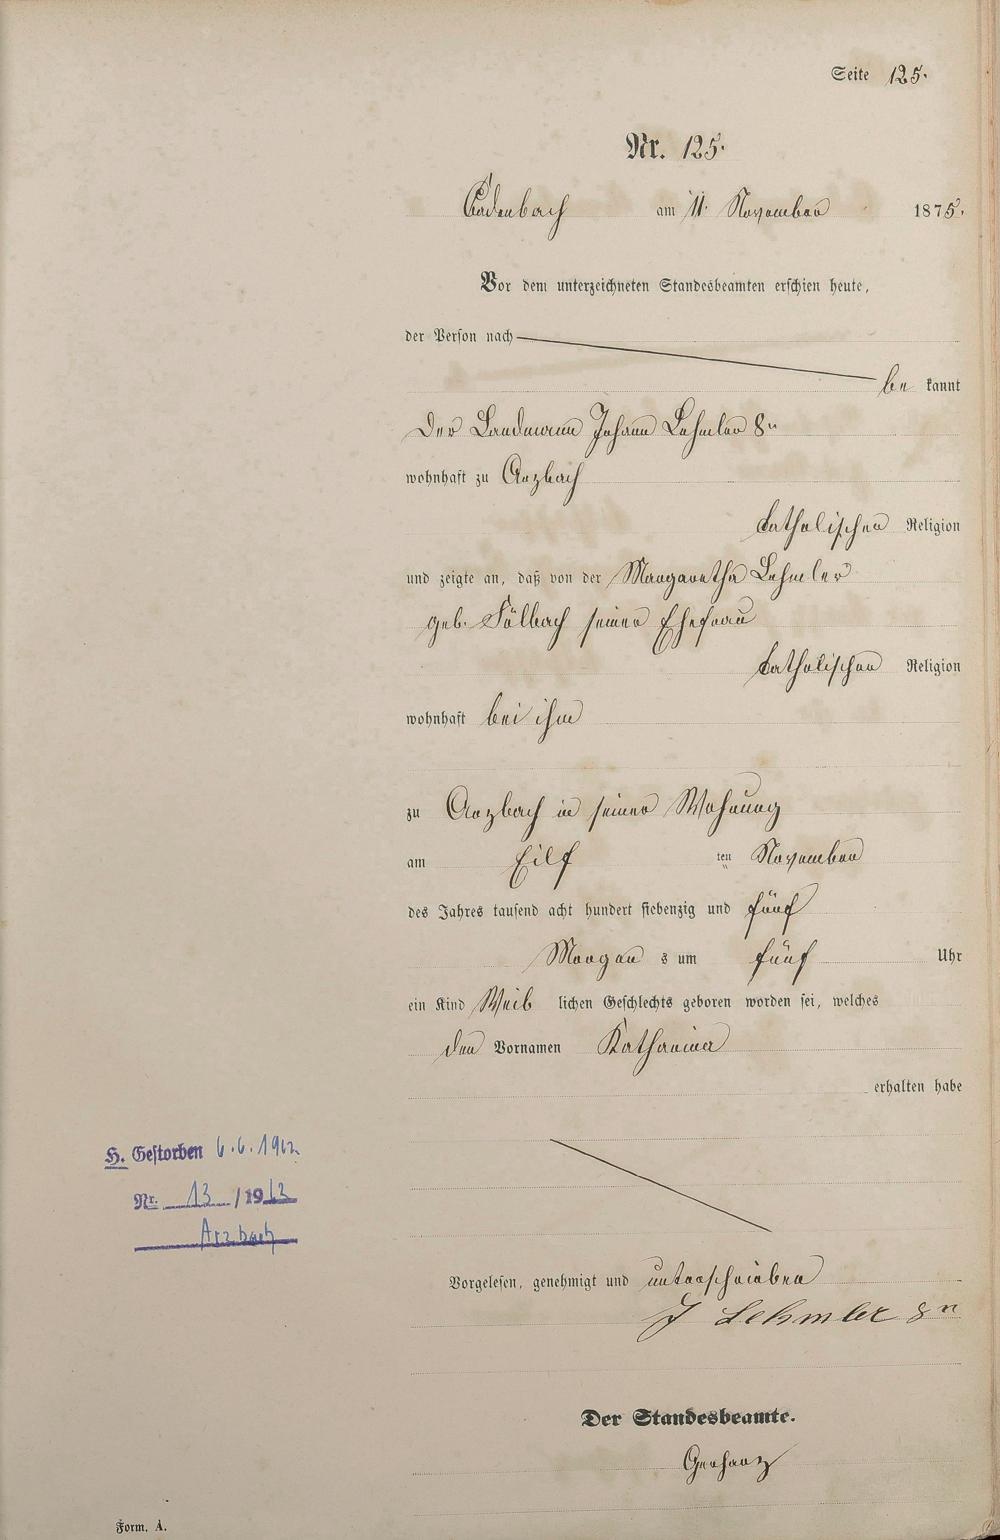 Seite 125.
Nr. 125.
Cadenbach am 11. November 1875.
Vor dem unterzeichneten Standesbeamten erschien heute,
der Person nach
be kannt
Der Landmann Johann Lehmler 8n
wohnhaft zu Arzbach
katholischer Religion
und zeigte an, daß von der Margaretha Lehmler
geb. Fölbach seiner Ehefrau
katholischer Religion
wohnhaft bei ihm
zu Arzbach in seiner Wohnung
am Eilf ten November
des Jahres tausend acht hundert siebenzig und fünf
Morgen s um fünf Uhr
ein Kind Weib lichen Geschlechts geboren worden sei, welches
den Vornamen Katharina
erhalten habe
H. Gestorben 6.6.1962
Nr. 13 / 1962
Arzbach
Vorgelesen, genehmigt und unterschrieben
J Lehmler 8n
Der Standesbeamte.
Gerharz
Form. A.